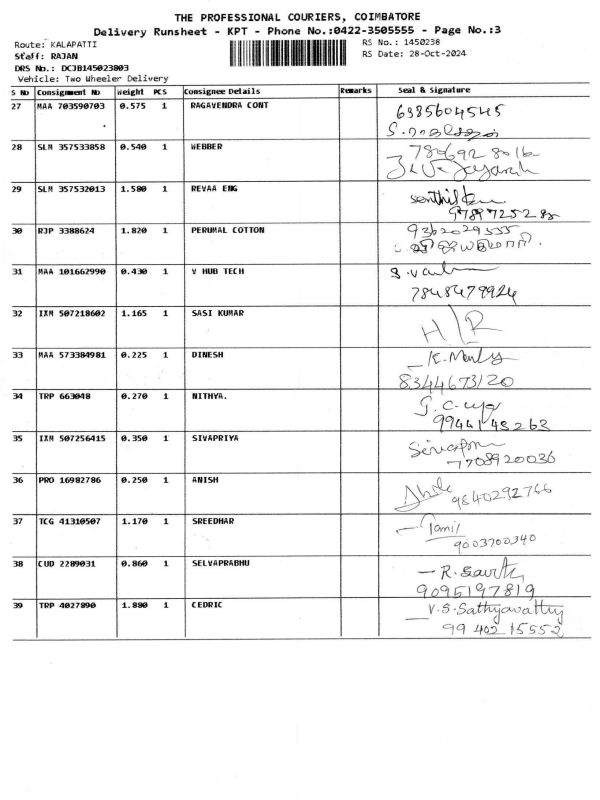 THE PROFESSIONAL COURIERS, COIMBATORE
Delivery Runsheet - KPT - Phone No.:0422-3505555 - Page No.:3
Route: KALAPATTI RS No.: 1450238
Staff: RAJAN RS Date: 28-Oct-2024
DRS No.: DCJB145023803
Vehicle: Two Wheeler Delivery
S No Consignment No Weight PCS Consignee Details Remarks Seal & Signature
27 MAA 703590703 0.575 1 RAGAVENDRA CONT 6385604545
28 SLM 357533858 0.540 1 WEBBER
29 SLM 357532013 1.580 1 REVAA ENG
30 RJP 3388624 1.820 1 PERUMAL COTTON 9362029555
31 MAA 101662990 0.430 1 V HUB TECH
7848479924
32 IXM 507218602 1.165 1 SASI KUMAR H/R
33 MAA 573384981 0.225 1 DINESH
8344673120
34 TRP 663048 0.270 1 NITHYA.
9944145263
35 IXM 507256415 0.350 1 SIVAPRIYA
7708920036
36 PRO 16982786 0.250 1 ANISH
9840292766
37 TCG 41310507 1.170 1 SREEDHAR Tamil
9003700340
38 CUD 2289031 0.860 1 SELVAPRABHU
9095197819
39 TRP 4027890 1.880 1 CEDRIC V.S.Sathyavathy
99 402 15552